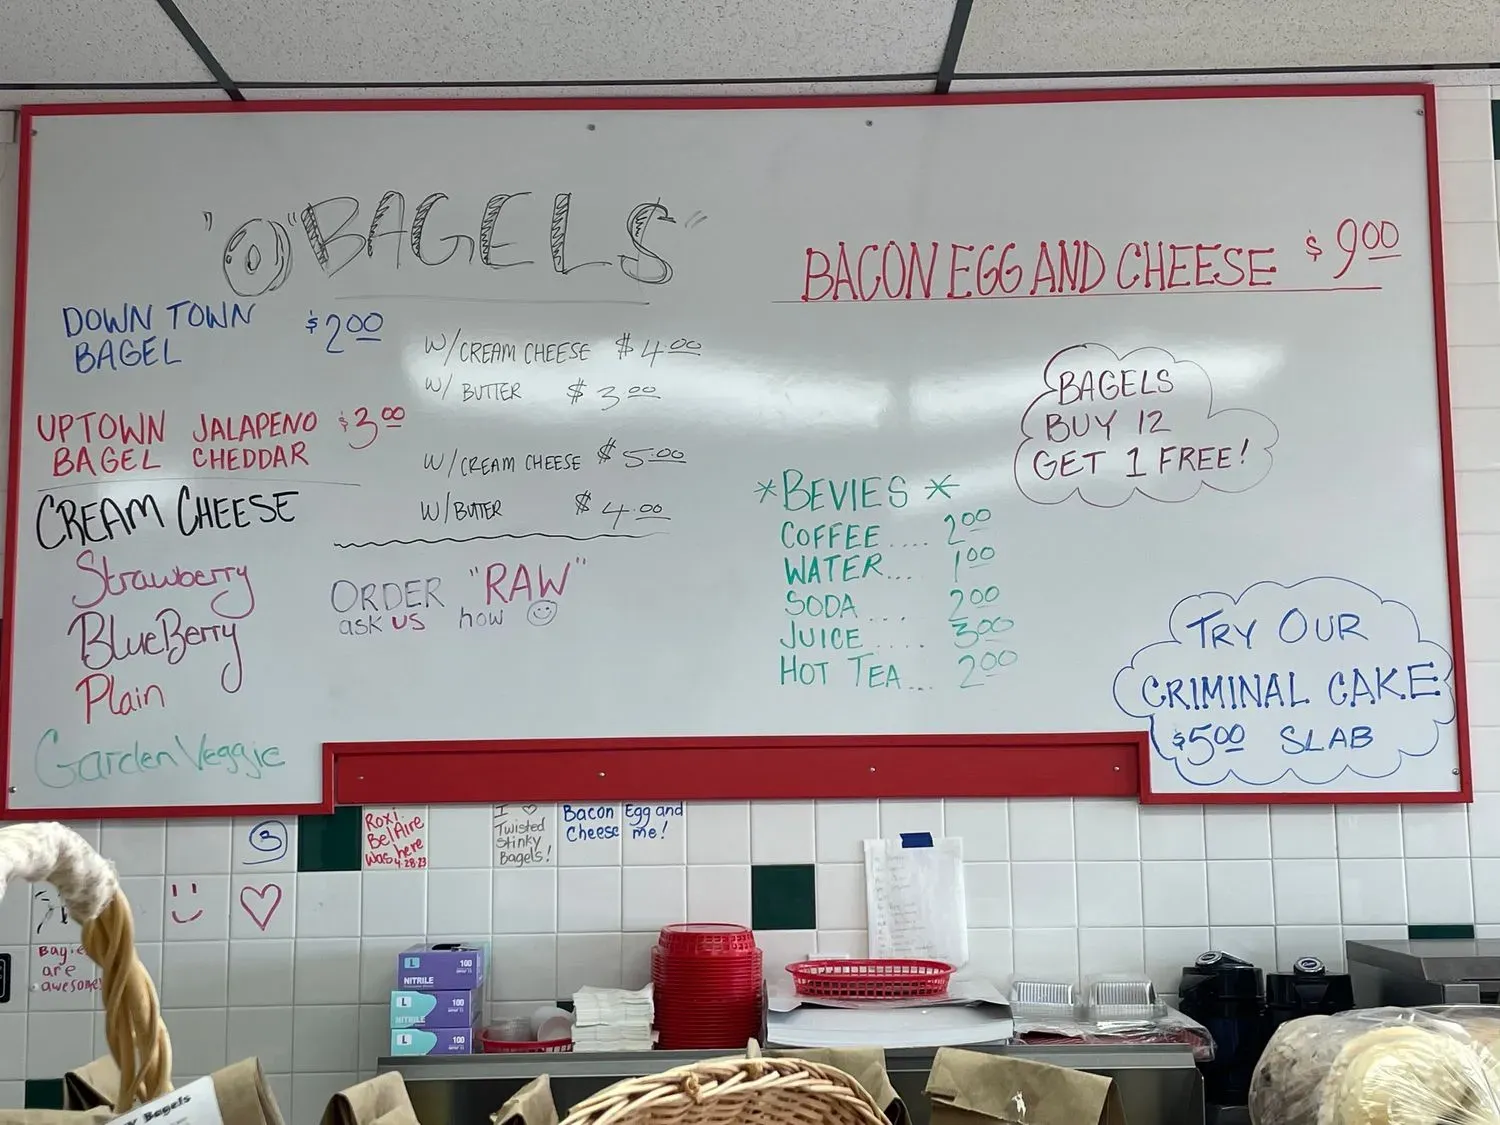 "O" BAGELS"
DOWN TOWN
BAGEL
$2.00
W/CREAM CHEESE $4.00
W/ BUTTER $3.00
UPTOWN JALAPENO
BAGEL CHEDDAR
$3.00
W/CREAM CHEESE $5.00
W/ BUTTER $4.00
CREAM CHEESE
Strawberry
BlueBerry
Plain
Garden Veggie
ORDER "RAW"
ask us how
BACON EGG AND CHEESE $9.00
BAGELS
BUY 12
GET 1 FREE!
*BEVIES*
COFFEE.... 2.00
WATER... 1.00
SODA.... 2.00
JUICE.... 3.00
HOT TEA... 2.00
TRY OUR
CRIMINAL CAKE
$5.00 SLAB
Roxi
BelAire
was here
4.28.23
I ♡
Twisted
Stinky
Bagels!
Bacon Egg and
Cheese me!
are
awesome
L 100
NITRILE
L 100
NITRILE
L 100
Bagels